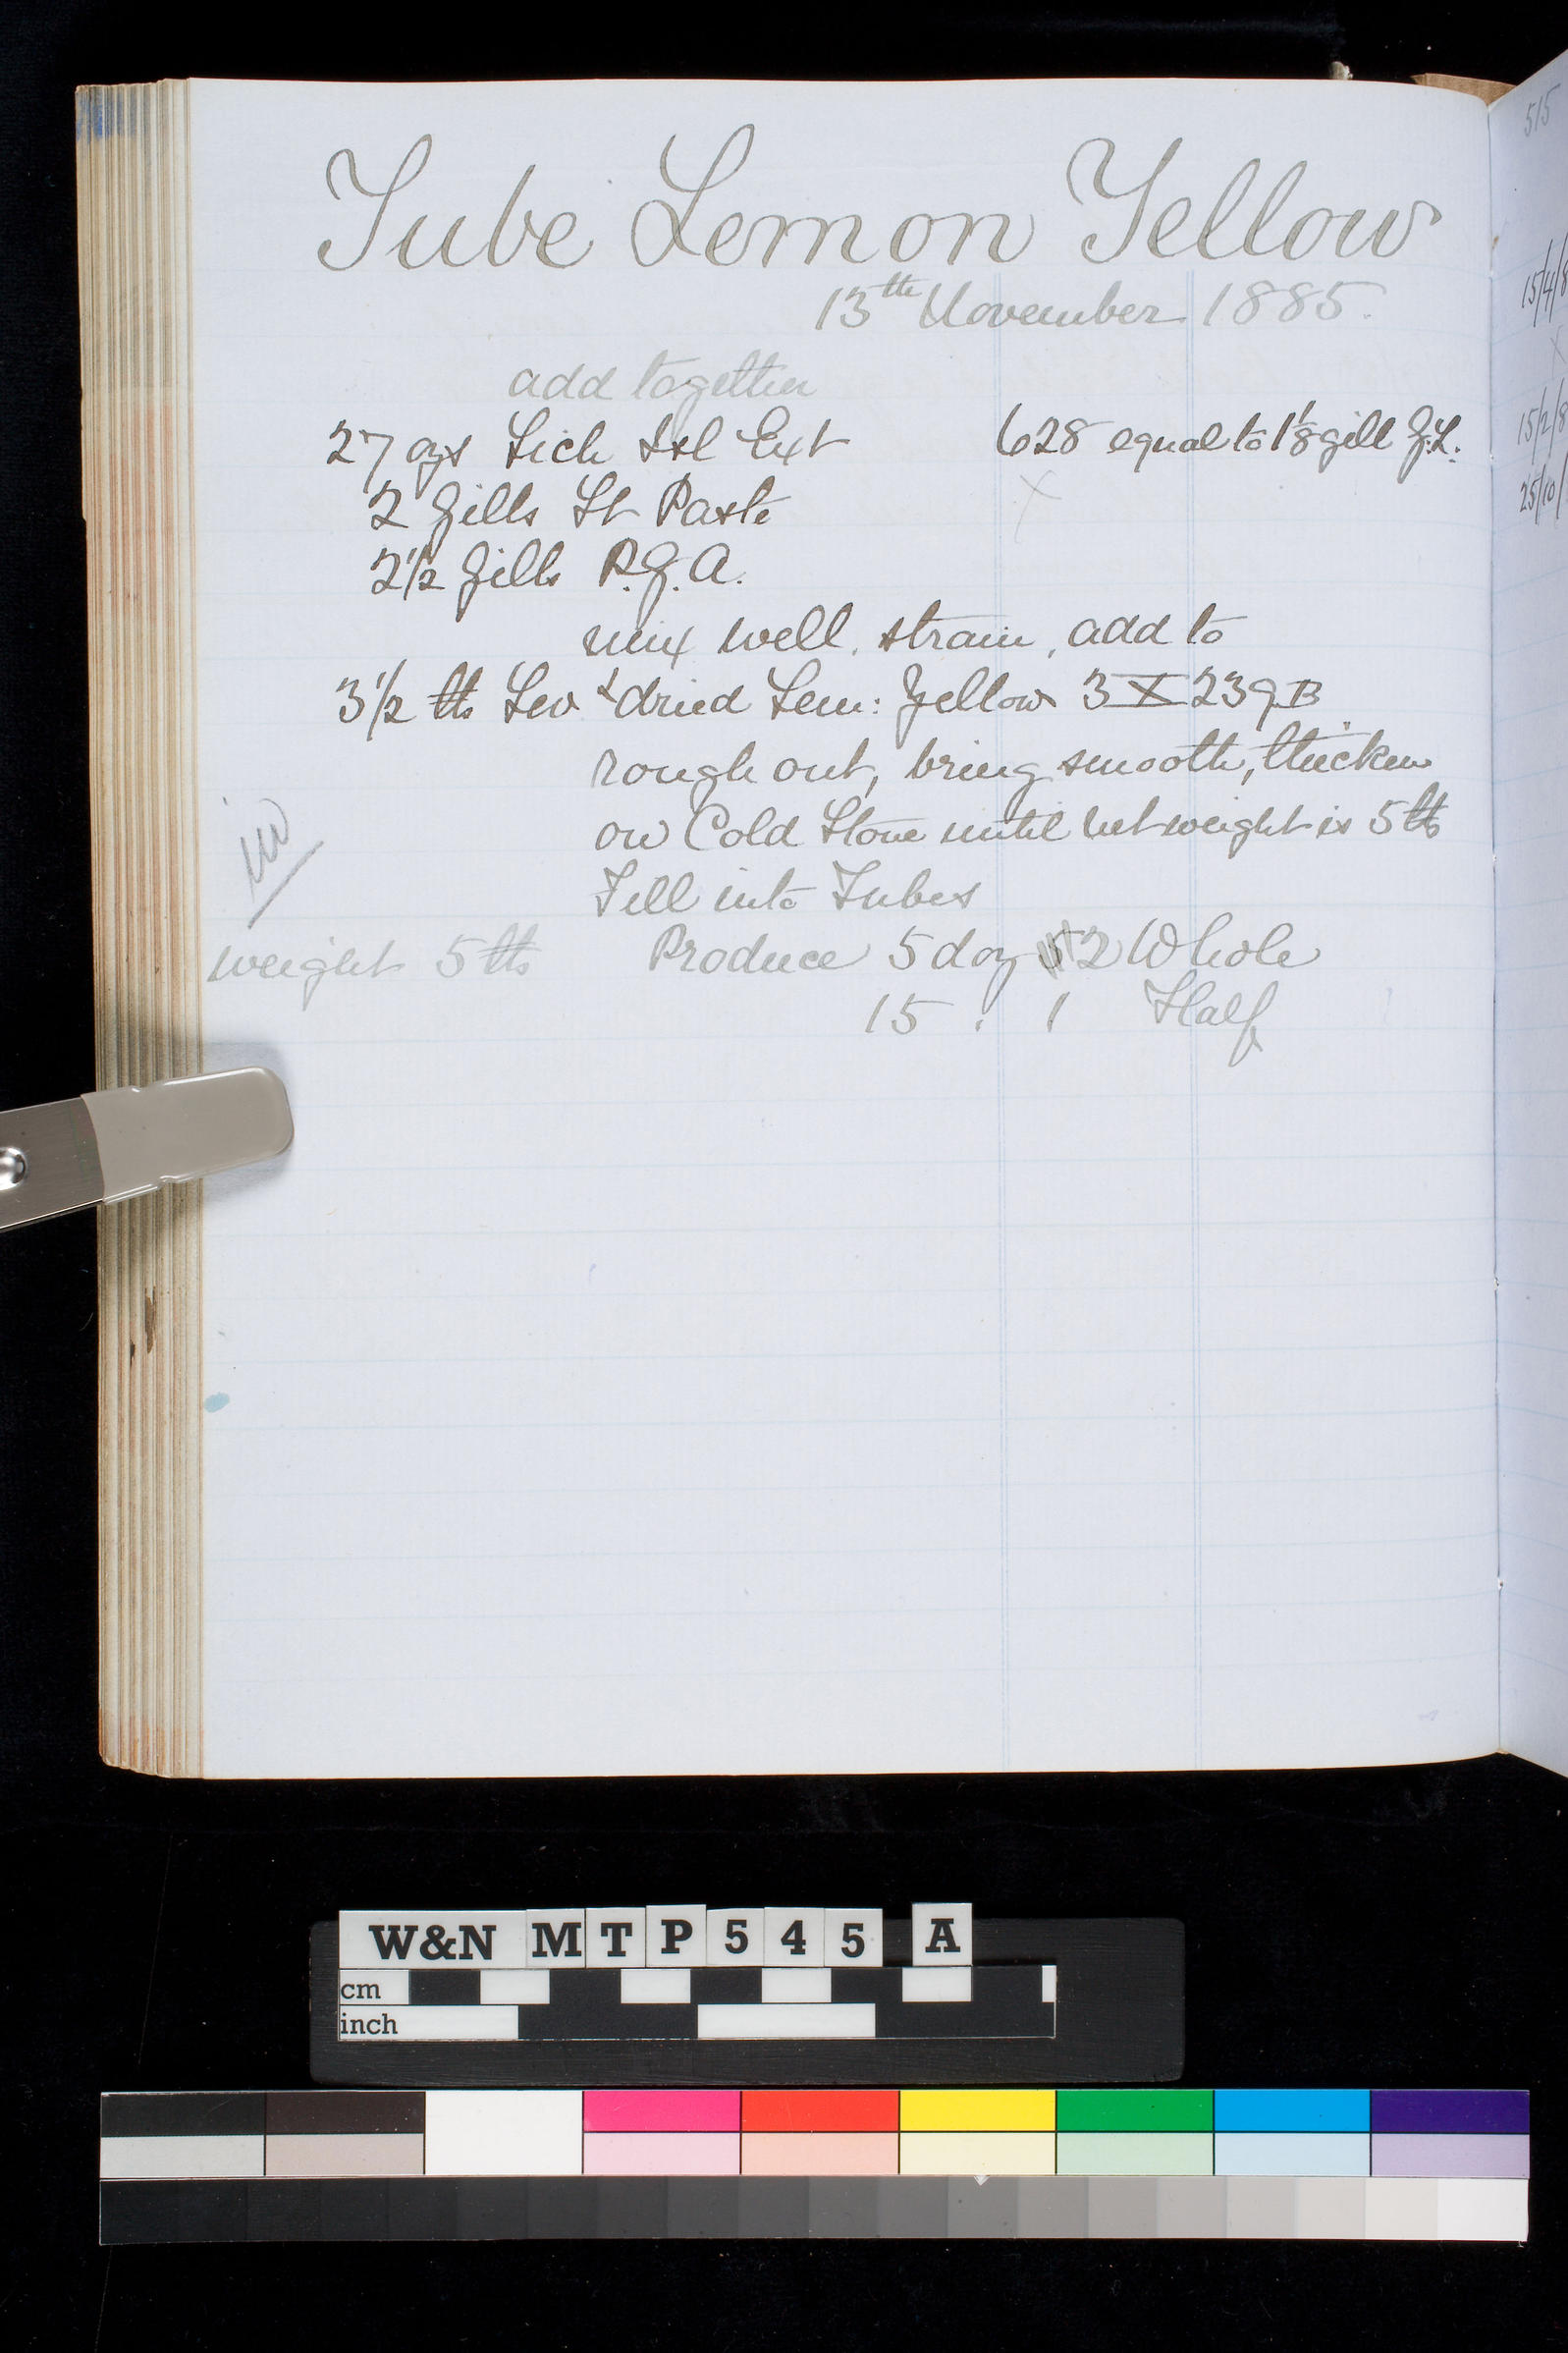 Tube Lemon Yellow
13th November 1885.
add together
27 ozs Lich Isl Ext 628 equal to 1 1/8 gill G.L.
x
2 Gills St Paste
2 1/2 Gills P.G.A.
mix well, strain, add to
3 1/2 lbs Lev & dried Lem: Yellow 3 X 239 B
rough out, bring smooth, thicken
on Cold Stone until net weight is 5 lbs
Fill into Tubes
weight 5 lbs Produce 5 doz 2 Whole
15 . 1 Half
515
15/4/8
15/2/8
25/10/
W&N MTP545 A
cm
inch